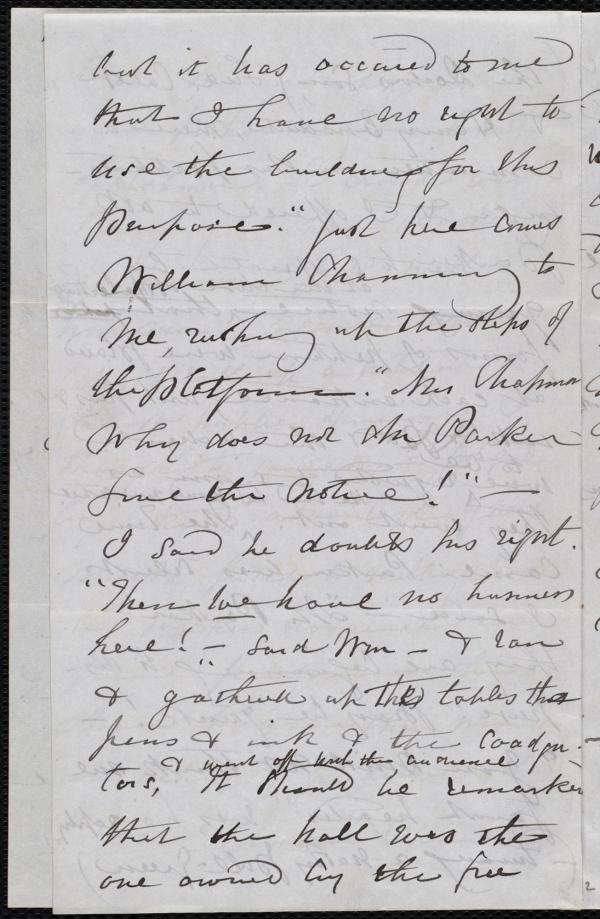 but it has occured to me
that I have no right to
use the building for this
purpose." Just here comes
William Channing to
me, rushing up the steps of
the platform. "Mrs Chapman
Why does not Mr Parker
give the notice!" —
I said he doubts his right.
"Then we have no business
here!" — said Wm — & ran
& gathered up the tables the
pens & ink & the coadju-
tors, & went off with the audience
It should be remarked
that the hall was the
one owned by the free